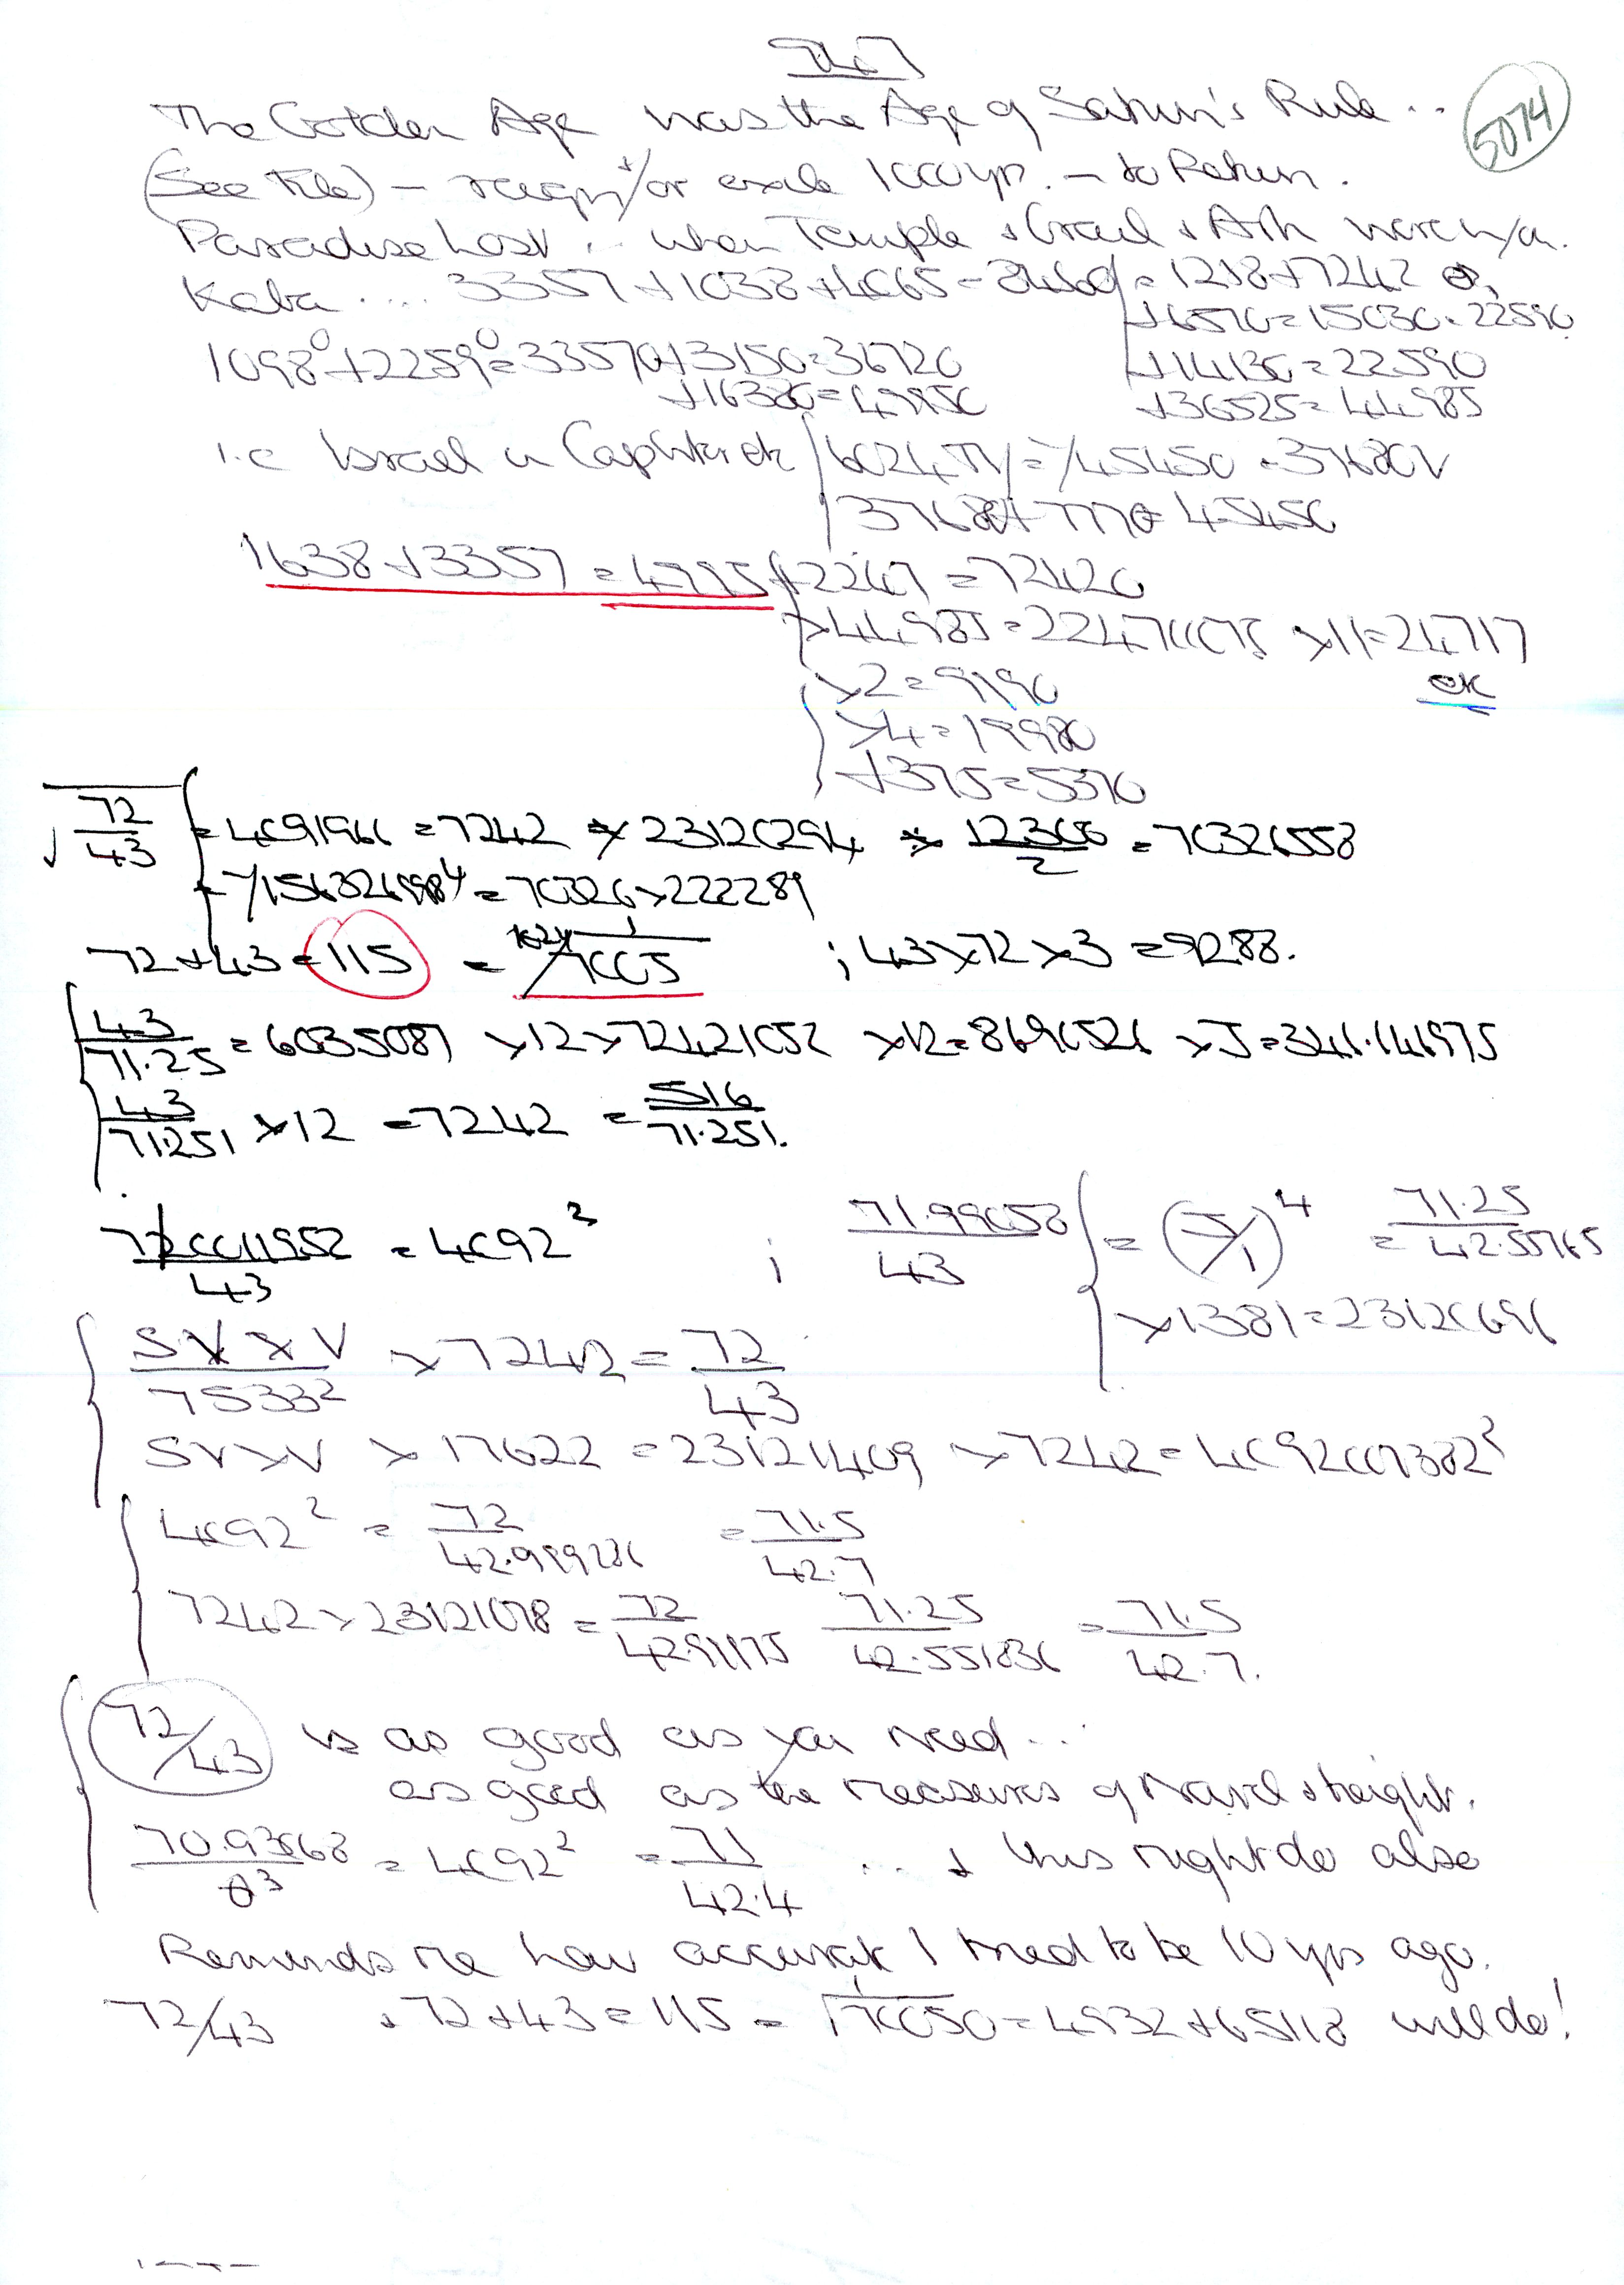 747
5074
The Golden Age was the Age of Saturn's Rule ..
(See File) – or exile 1000yr. – to Return.
Paradise Lost .. when Temple + Grail + Ark were
Kaba .... 3357 + 1038 + 4065 = 8460 = 1218 + 7242
+ 6570 = 15030 . 22590
1098° + 2259° = 33570 + 3150 = 36720
+ 14130 = 22590
+ 16380 = 49950
+ 36525 = 44985
i.e Israel in Captivity etc
6024 = 1/45450 = 37680
37680 + 7770 = 45450
1638 + 3357 = 4995 + 2247 = 72420
× 44985 = 22470075 × 11 = 24717
× 2 = 9990 ok
× 4 = 19980
+ 375 = 5370
√72/43 = 4091966 = 7242 × 23120294 × 12306/2 = 70326558
= 70326 × 222289
72 + 43 = 115 = ; 43 × 72 × 3 = 9288.
43/71.25 = 6035087 × 12 × 72421052 × 12 = 8690526 × 5 = 346.146975
43/71.251 × 12 = 7242 = 516/71.251.
72.0011952/43 = 4092² ; 71.99058/43 = (5/1)⁴ = 71.25/42.55765
× 1381 = 23120696
SV × V/75332 × 7242 = 72/43
SV × V × 17622 = 23121409 × 7242 = 4092007382²
4092² = 72/42.999286 = 71.5/42.7
7242 × 23121078 = 72/42.99975 71.25/42.551836 = 71.5/42.7.
72/43 is as good as you need ...
as good as the measures of Navel + height.
70.93668/θ³ = 4092² = 71/42.4 ... + this might do also
Reminds me how accurate I tried to be 10 yrs ago.
72/43 + 72 + 43 = 115 = = 4932 + 65118 will do!